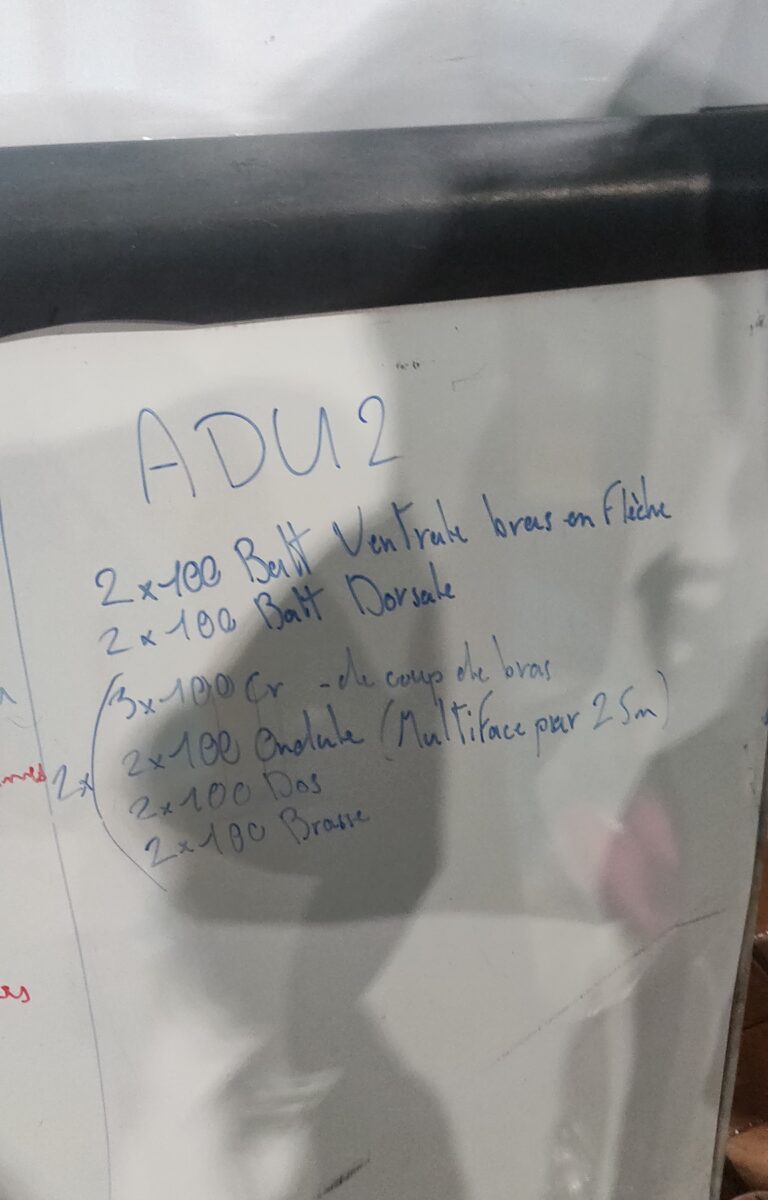 ADU2
2x100 Batt Ventrale bras en flèche
2x100 Batt Dorsale
3x100 Cr - de coup de bras
2x100 Ondule (Multiface par 25m)
2x
2x100 Dos
2x100 Brasse